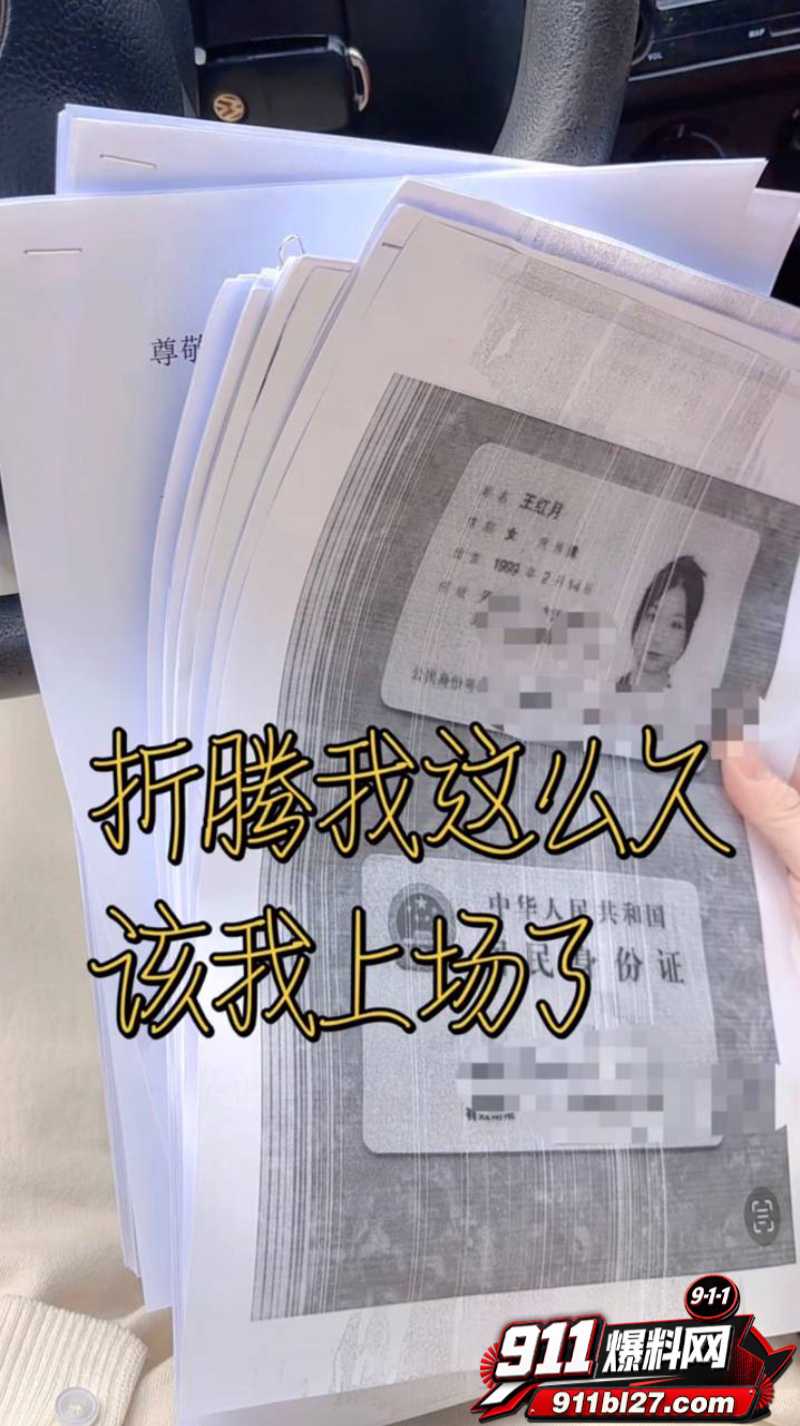 VOL
MAP
尊敬
姓名 王红月
性别 女 民族 汉
出生 1999 年 2 月 14 日
住址
公民身份号
折腾我这么久
该我上场了
中华人民共和国
民身份证
9-1-1
911爆料网
911bl27.com